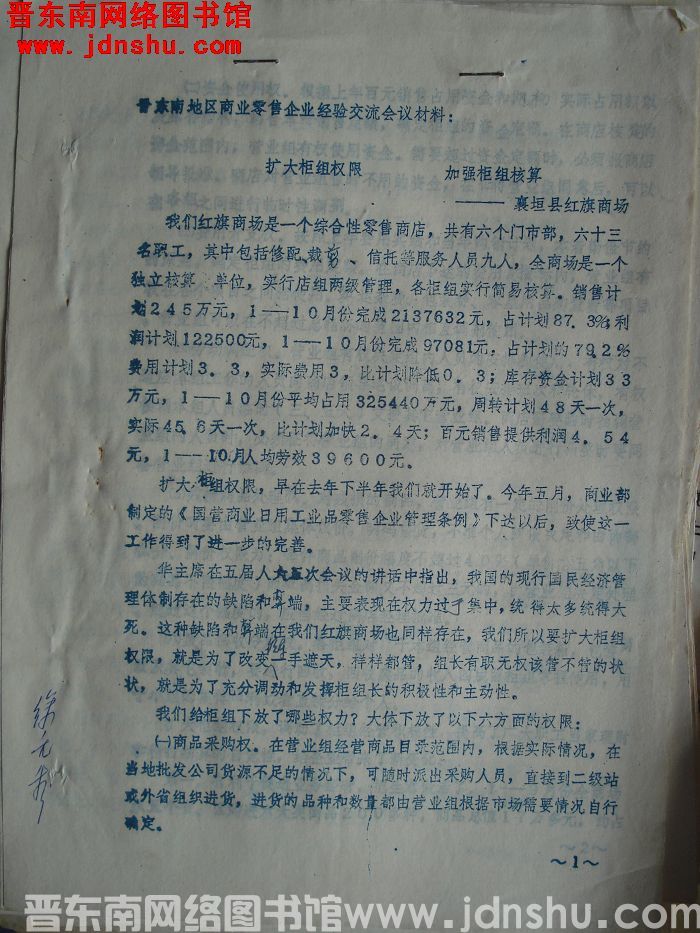 晋东南网络图书馆
www.jdnshu.com
晋东南地区商业零售企业经验交流会议材料：
扩大柜组权限 加强柜组核算
——襄垣县红旗商场
我们红旗商场是一个综合性零售商店，共有六个门市部，六十三
名职工，其中包括修配、裁剪、信托等服务人员九人，全商场是一个
独立核算 单位，实行店组两级管理，各柜组实行简易核算。销售计
划245万元，1—10月份完成2137632元，占计划87.3%；利
润计划122500元，1—10月份完成97081元，占计划的79.2%
费用计划3.3，实际费用3，比计划降低0.3；库存资金计划33
万元，1—10月份平均占用325440万元，周转计划48天一次，
实际45.6天一次，比计划加快2.4天；百元销售提供利润4.54
元，1—10月人均劳效39600元。
扩大柜组权限，早在去年下半年我们就开始了。今年五月，商业部
制定的《国营商业日用工业品零售企业管理条例》下达以后，致使这一
工作得到了进一步的完善。
华主席在五届人大五次会议的讲话中指出，我国的现行国民经济管
理体制存在的缺陷和弊端，主要表现在权力过于集中，统得太多统得大
死。这种缺陷和弊端在我们红旗商场也同样存在，我们所以要扩大柜组
权限，就是为了改变一手遮天，样样都管，组长有职无权该管不管的状
状，就是为了充分调动和发挥柜组长的积极性和主动性。
我们给柜组下放了哪些权力？大体下放了以下六方面的权限：
㈠商品采购权。在营业组经营商品目录范围内，根据实际情况，在
当地批发公司货源不足的情况下，可随时派出采购人员，直接到二级站
或外省组织进货，进货的品种和数量都由营业组根据市场需要情况自行
确定。
～1～
晋东南网络图书馆www.jdnshu.com